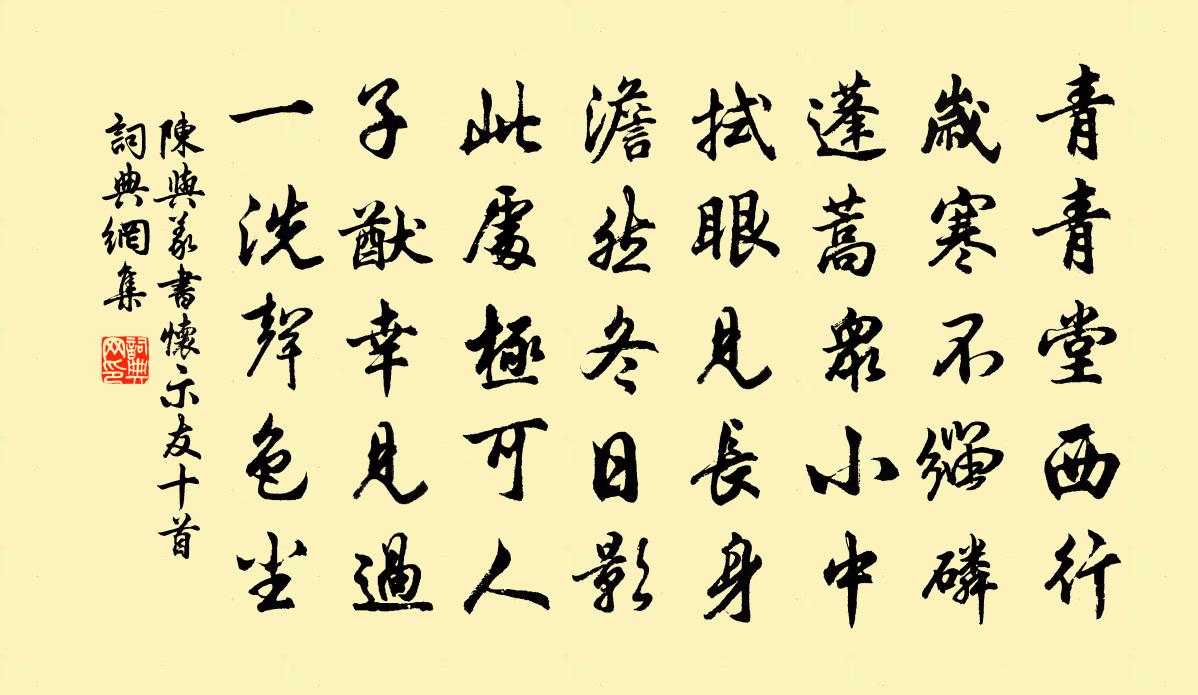 青青堂西竹
歲寒不緇磷
蓬蒿眾小中
拭眼見長身
澹然冬日影
此處極可人
子猷幸見過
一洗聲色塵
陳與義書懷示友十首
詞典網集
詞典
网印